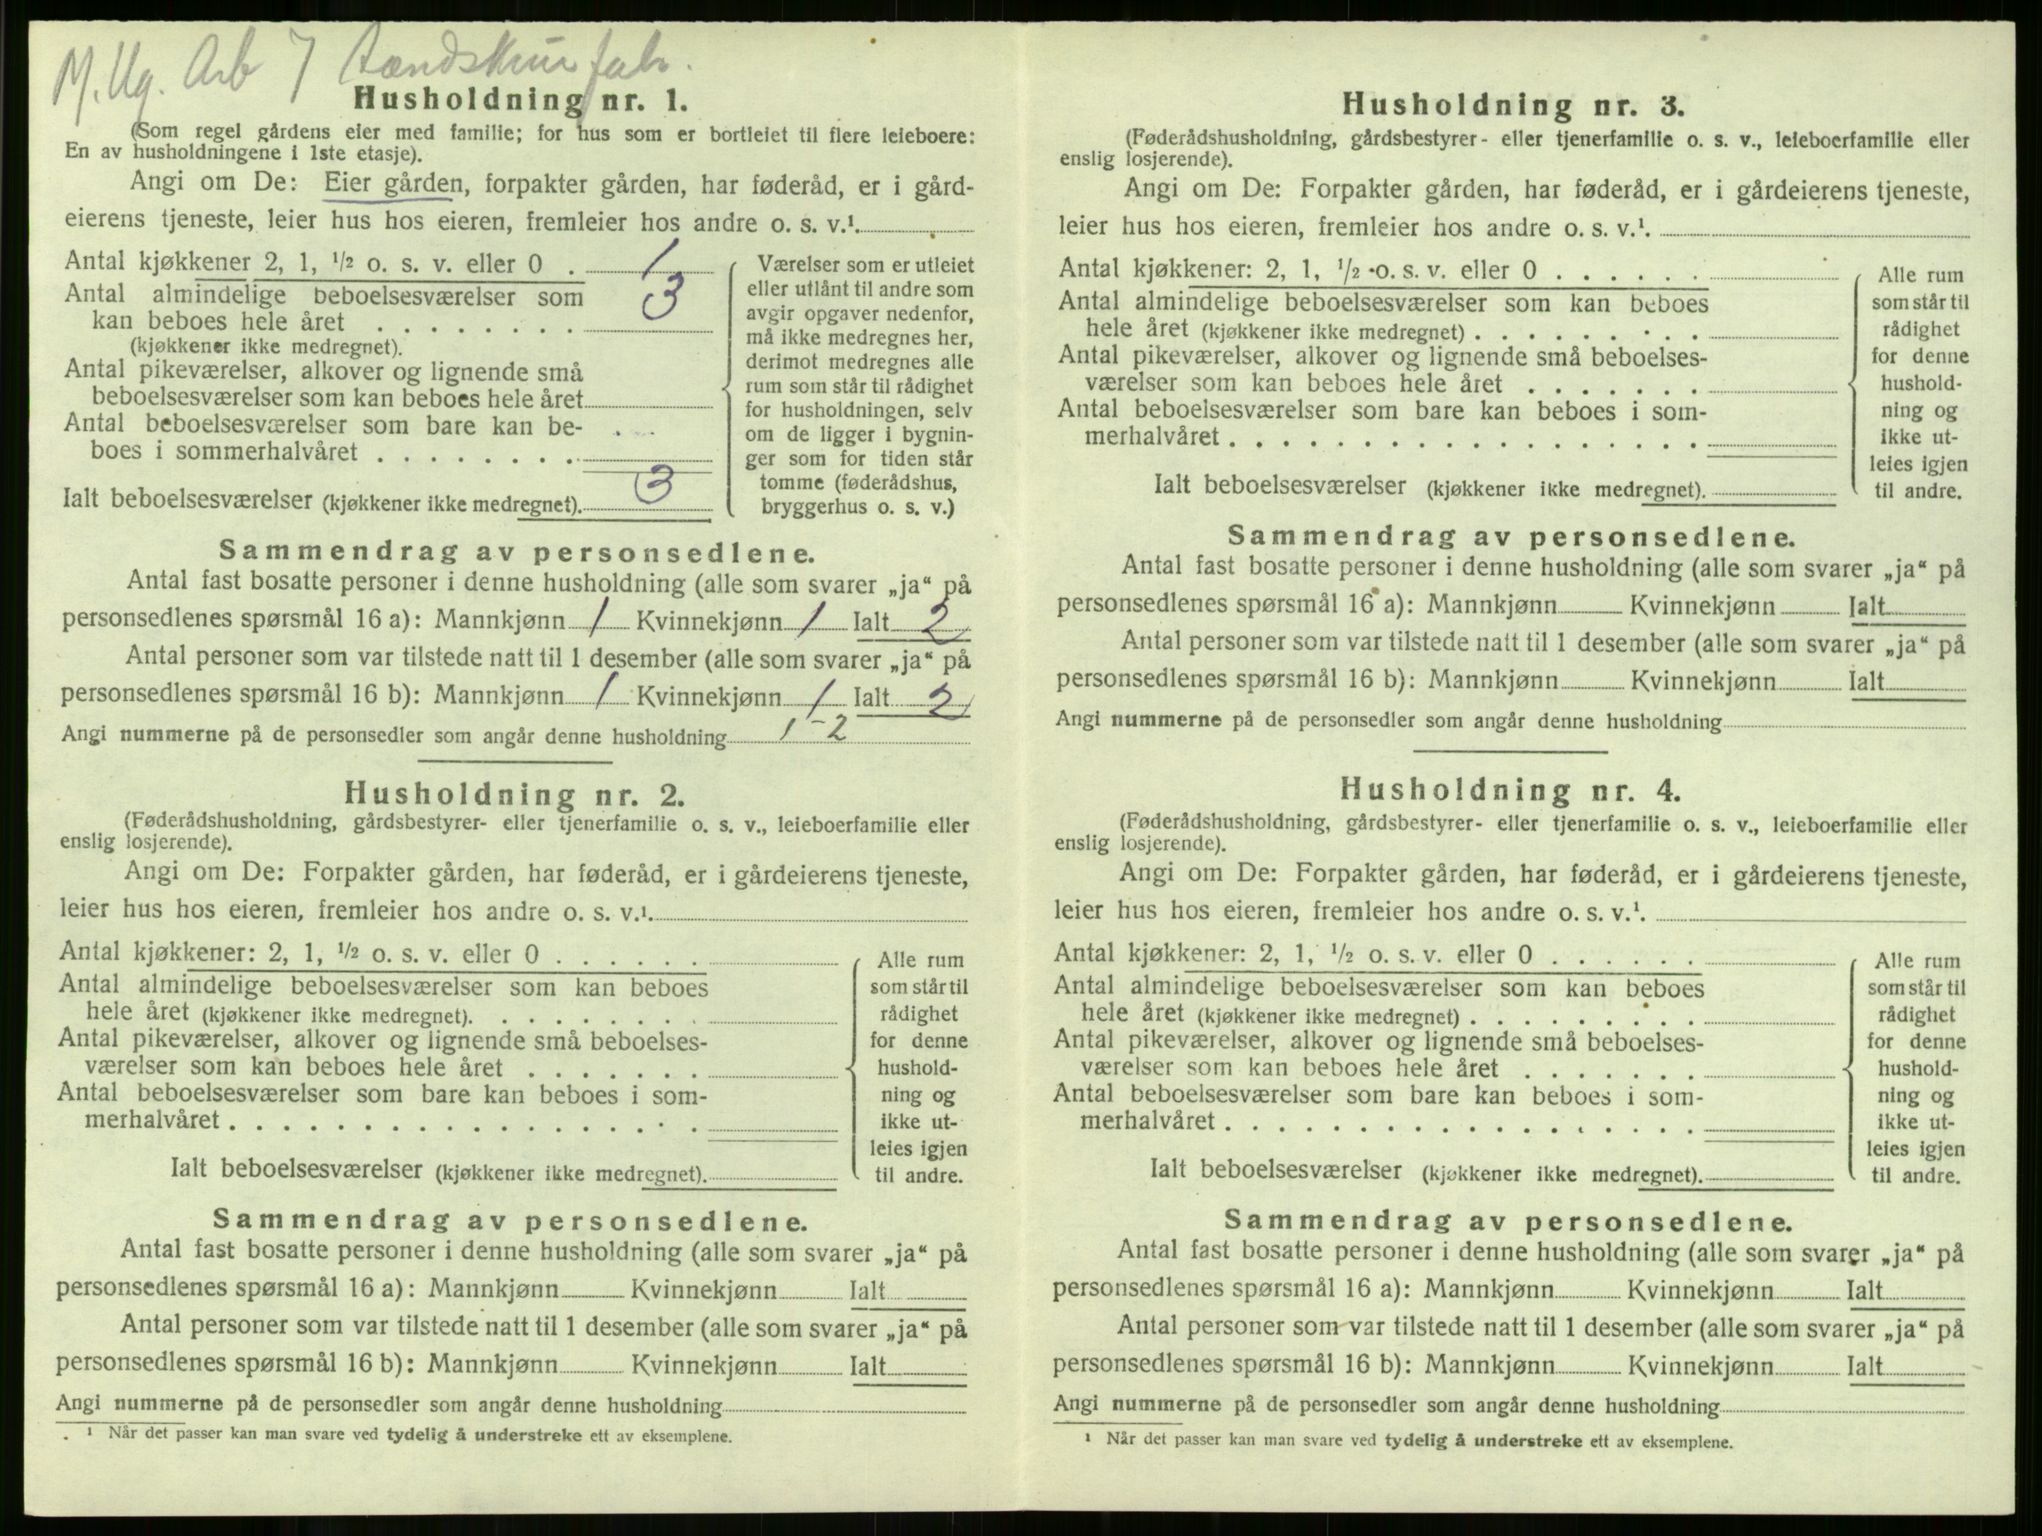 M. Ug. Arb 7
Husholdning nr. 1.
(Som regel gårdens eier med familie; for hus som er bortleiet til flere leieboere:
En av husholdningene i 1ste etasje).
Angi om De: Eier gården, forpakter gården, har føderåd, er i gård-
eierens tjeneste, leier hus hos eieren, fremleier hos andre o. s. v.¹.
Antal kjøkkener 2, 1, ½ o. s. v. eller 0 . 1
Antal almindelige beboelsesværelser som
kan beboes hele året . . . . . . . . 3
(kjøkkener ikke medregnet).
Antal pikeværelser, alkover og lignende små
beboelsesværelser som kan beboes hele året
Antal beboelsesværelser som bare kan be-
boes i sommerhalvåret . . . . . . . .
Ialt beboelsesværelser (kjøkkener ikke medregnet). 3
Værelser som er utleiet
eller utlånt til andre som
avgir opgaver nedenfor,
må ikke medregnes her,
derimot medregnes alle
rum som står til rådighet
for husholdningen, selv
om de ligger i bygnin-
ger som for tiden står
tomme (føderådshus,
bryggerhus o. s. v.)
Sammendrag av personsedlene.
Antal fast bosatte personer i denne husholdning (alle som svarer „ja“ på
personsedlenes spørsmål 16 a): Mannkjønn 1 Kvinnekjønn 1 Ialt 2
Antal personer som var tilstede natt til 1 desember (alle som svarer „ja“ på
personsedlenes spørsmål 16 b): Mannkjønn 1 Kvinnekjønn 1 Ialt 2
Angi nummerne på de personsedler som angår denne husholdning 1-2
Husholdning nr. 2.
(Føderådshusholdning, gårdsbestyrer- eller tjenerfamilie o. s. v., leieboerfamilie eller
enslig losjerende).
Angi om De: Forpakter gården, har føderåd, er i gårdeierens tjeneste,
leier hus hos eieren, fremleier hos andre o. s. v.¹.
Antal kjøkkener: 2, 1, ½ o. s. v. eller 0 . . . . . .
Antal almindelige beboelsesværelser som kan beboes
hele året (kjøkkener ikke medregnet). . . . . . . . .
Antal pikeværelser, alkover og lignende små beboelses-
værelser som kan beboes hele året . . . . . . .
Antal beboelsesværelser som bare kan beboes i som-
merhalvåret . . . . . . . . . . . . . . . . . .
Ialt beboelsesværelser (kjøkkener ikke medregnet).
Alle rum
som står til
rådighet
for denne
hushold-
ning og
ikke ut-
leies igjen
til andre.
Sammendrag av personsedlene.
Antal fast bosatte personer i denne husholdning (alle som svarer „ja“ på
personsedlenes spørsmål 16 a): Mannkjønn Kvinnekjønn Ialt
Antal personer som var tilstede natt til 1 desember (alle som svarer „ja“ på
personsedlenes spørsmål 16 b): Mannkjønn Kvinnekjønn Ialt
Angi nummerne på de personsedler som angår denne husholdning
¹ Når det passer kan man svare ved tydelig å understreke ett av eksemplene.
Husholdning nr. 3.
(Føderådshusholdning, gårdsbestyrer- eller tjenerfamilie o. s. v., leieboerfamilie eller
enslig losjerende).
Angi om De: Forpakter gården, har føderåd, er i gårdeierens tjeneste,
leier hus hos eieren, fremleier hos andre o. s. v.¹.
Antal kjøkkener: 2, 1, ½ o. s. v. eller 0 . . . . . .
Antal almindelige beboelsesværelser som kan beboes
hele året (kjøkkener ikke medregnet) . . . . . . . . .
Antal pikeværelser, alkover og lignende små beboelses-
værelser som kan beboes hele året . . . . . . .
Antal beboelsesværelser som bare kan beboes i som-
merhalvåret . . . . . . . . . . . . . . . . . .
Ialt beboelsesværelser (kjøkkener ikke medregnet).
Alle rum
som står til
rådighet
for denne
hushold-
ning og
ikke ut-
leies igjen
til andre.
Sammendrag av personsedlene.
Antal fast bosatte personer i denne husholdning (alle som svarer „ja“ på
personsedlenes spørsmål 16 a): Mannkjønn Kvinnekjønn Ialt
Antal personer som var tilstede natt til 1 desember (alle som svarer „ja“ på
personsedlenes spørsmål 16 b): Mannkjønn Kvinnekjønn Ialt
Angi nummerne på de personsedler som angår denne husholdning
Husholdning nr. 4.
(Føderådshusholdning, gårdsbestyrer- eller tjenerfamilie o. s. v., leieboerfamilie eller
enslig losjerende).
Angi om De: Forpakter gården, har føderåd, er i gårdeierens tjeneste,
leier hus hos eieren, fremleier hos andre o. s. v.¹.
Antal kjøkkener: 2, 1, ½ o. s. v. eller 0 . . . . . .
Antal almindelige beboelsesværelser som kan beboes
hele året (kjøkkener ikke medregnet) . . . . . . . . .
Antal pikeværelser, alkover og lignende små beboelses-
værelser som kan beboes hele året . . . . . . .
Antal beboelsesværelser som bare kan beboes i som-
merhalvåret . . . . . . . . . . . . . . . . . .
Ialt beboelsesværelser (kjøkkener ikke medregnet).
Alle rum
som står til
rådighet
for denne
hushold-
ning og
ikke ut-
leies igjen
til andre.
Sammendrag av personsedlene.
Antal fast bosatte personer i denne husholdning (alle som svarer „ja“ på
personsedlenes spørsmål 16 a): Mannkjønn Kvinnekjønn Ialt
Antal personer som var tilstede natt til 1 desember (alle som svarer „ja“ på
personsedlenes spørsmål 16 b): Mannkjønn Kvinnekjønn Ialt
Angi nummerne på de personsedler som angår denne husholdning
¹ Når det passer kan man svare ved tydelig å understreke ett av eksemplene.